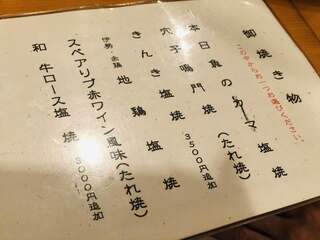 御焼き物
この中からお一つお選びください。
本日魚のカマ 塩焼
(たれ焼)
穴子鳴門焼
きんき塩焼 3500円追加
地鶏塩焼
スペアリブ赤ワイン風味(たれ焼)
和牛ロース塩焼 3000円追加